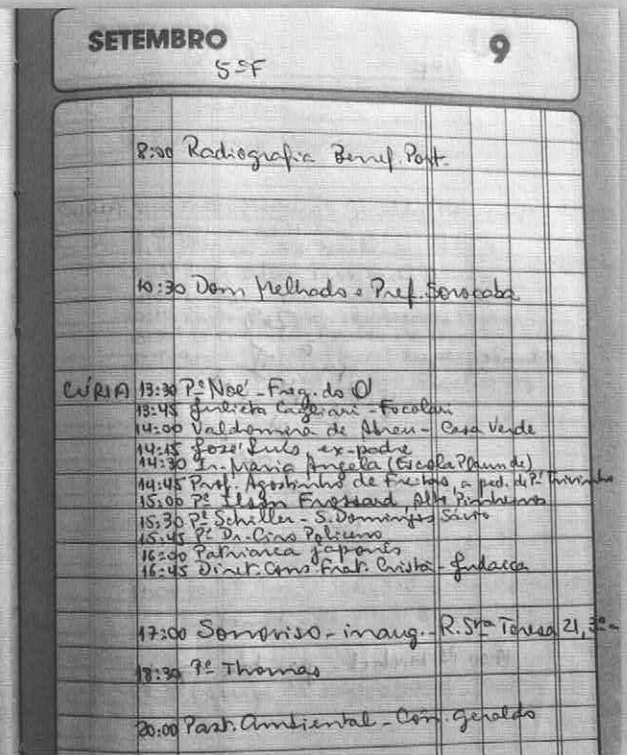 SETEMBRO 9
5ª F
8:00 Radiografia Benef. Port.
10:30 Dom Melhado e Pref. Sorocaba
CÚRIA 13:30 Pe Noé - Freg. do Ó
13:45 Julieta Cagliari - Focolari
14:00 Valdomira de Abreu - Casa Verde
14:15 José Luís, ex-padre
14:30 Ir. Maria Angela (Escola
14:45 Prof. Agostinho de Freitas, a ped. de Pe
15:00 Pe Ilson Frossard, Alto Pinheiros
15:30 Pe Schiller - S. Domingos Sávio
15:45 Pe Dr. Ciro
16:00 Patriarca japonês
16:45 Diret. Cons. Frat. Cristã - Judaica
17:00 Sonoviso - inaug. - R. Sta Teresa 21,
18:30 Pe Thomas
20:00 Past. Ambiental - Côn. Geraldo